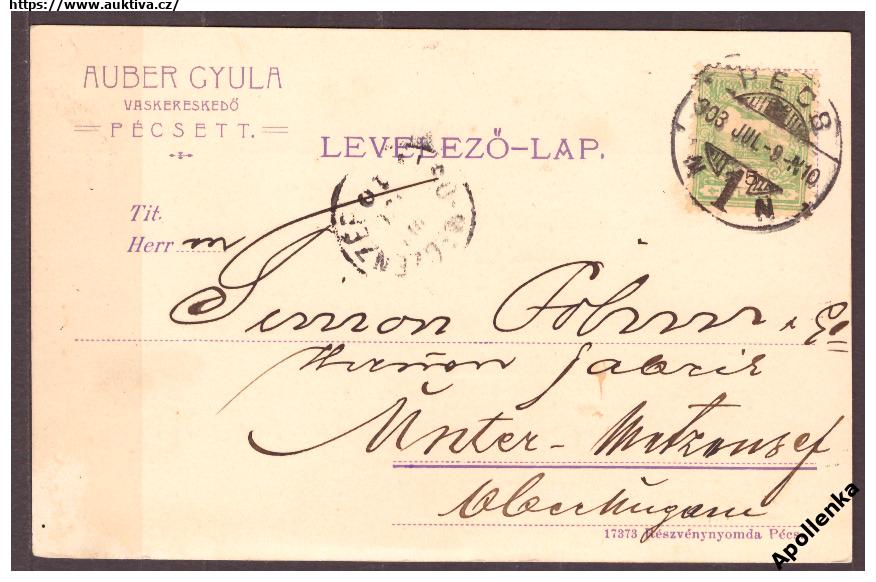 https://www.auktiva.cz/
AUBER GYULA
VASKERESKEDŐ
PÉCSETT.
LEVELEZŐ-LAP.
PÉCS
903 JUL-9-N10
1 N
Tit.
Herr
Simon
Unter-Metzenseif
Oberhugarn
17373 Részvénynyomda Pécs
Apollenka